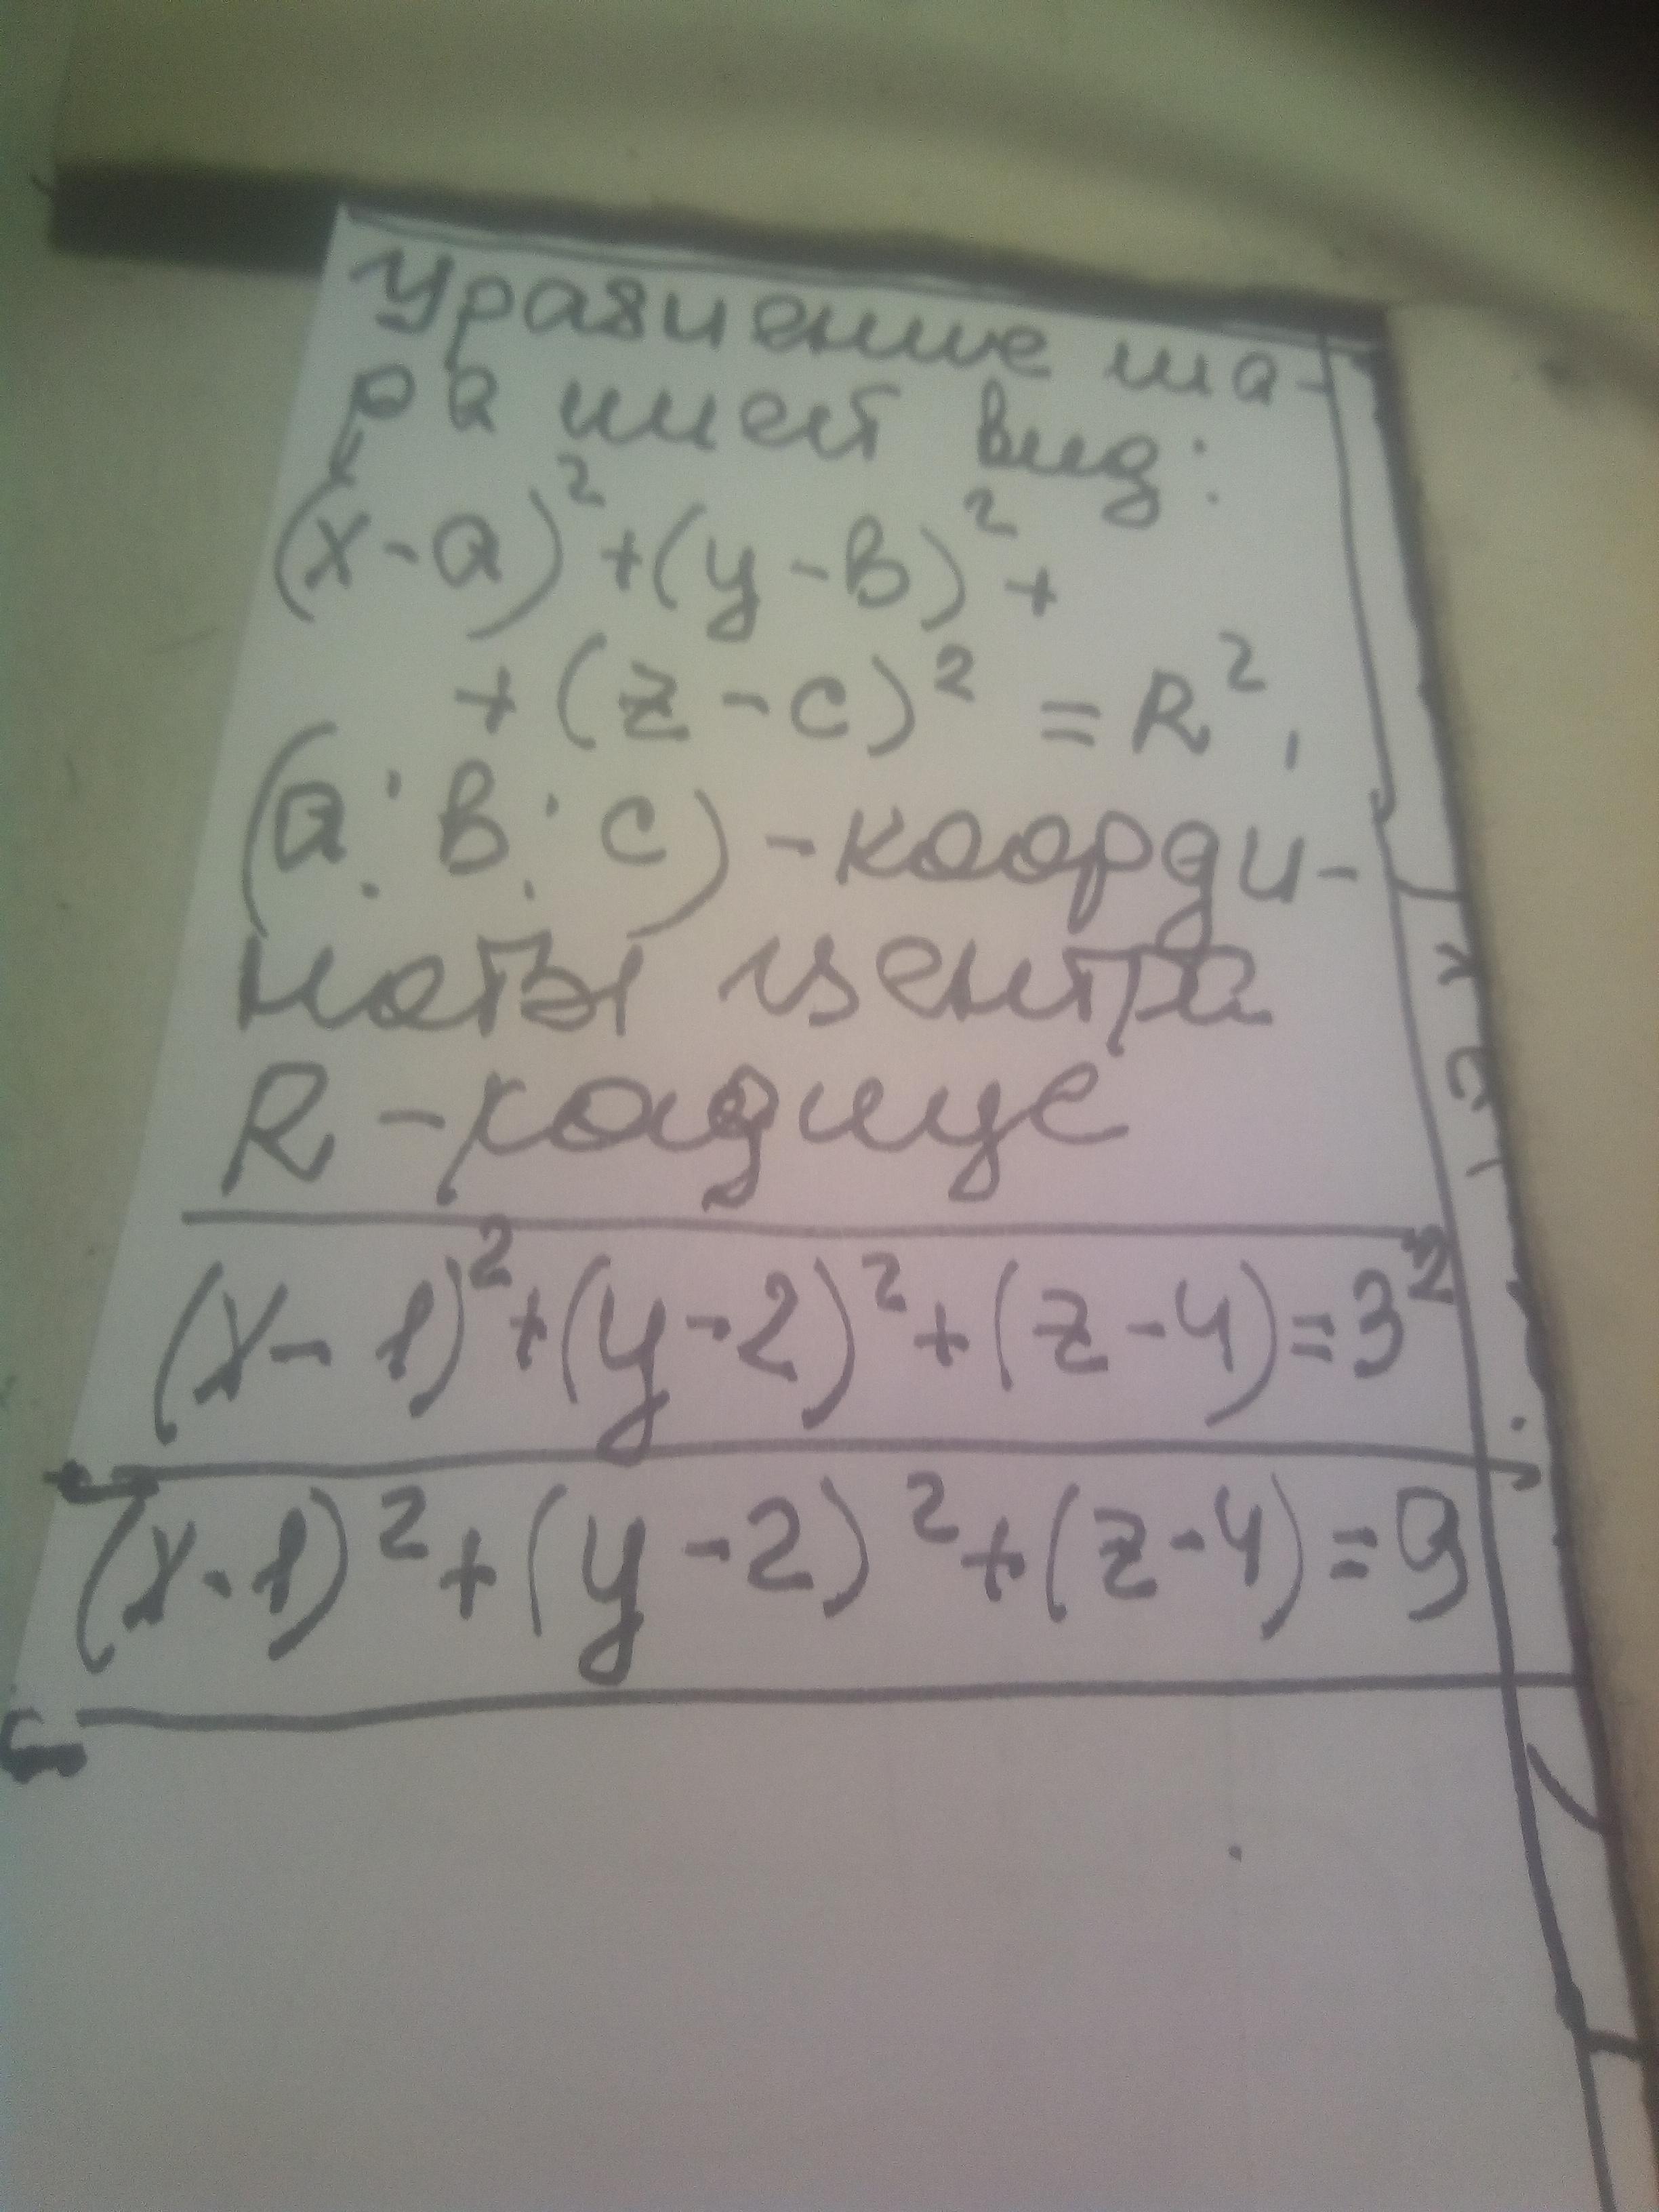 Уравнение ша-
ра имеет вид:
(x-a)²+(y-в)²+
+(z-c)²=R²,
(a;в;c)-коорди-
наты центра
R-радиус
(x-1)²+(y-2)²+(z-4)=3²
(x-1)²+(y-2)²+(z-4)=9